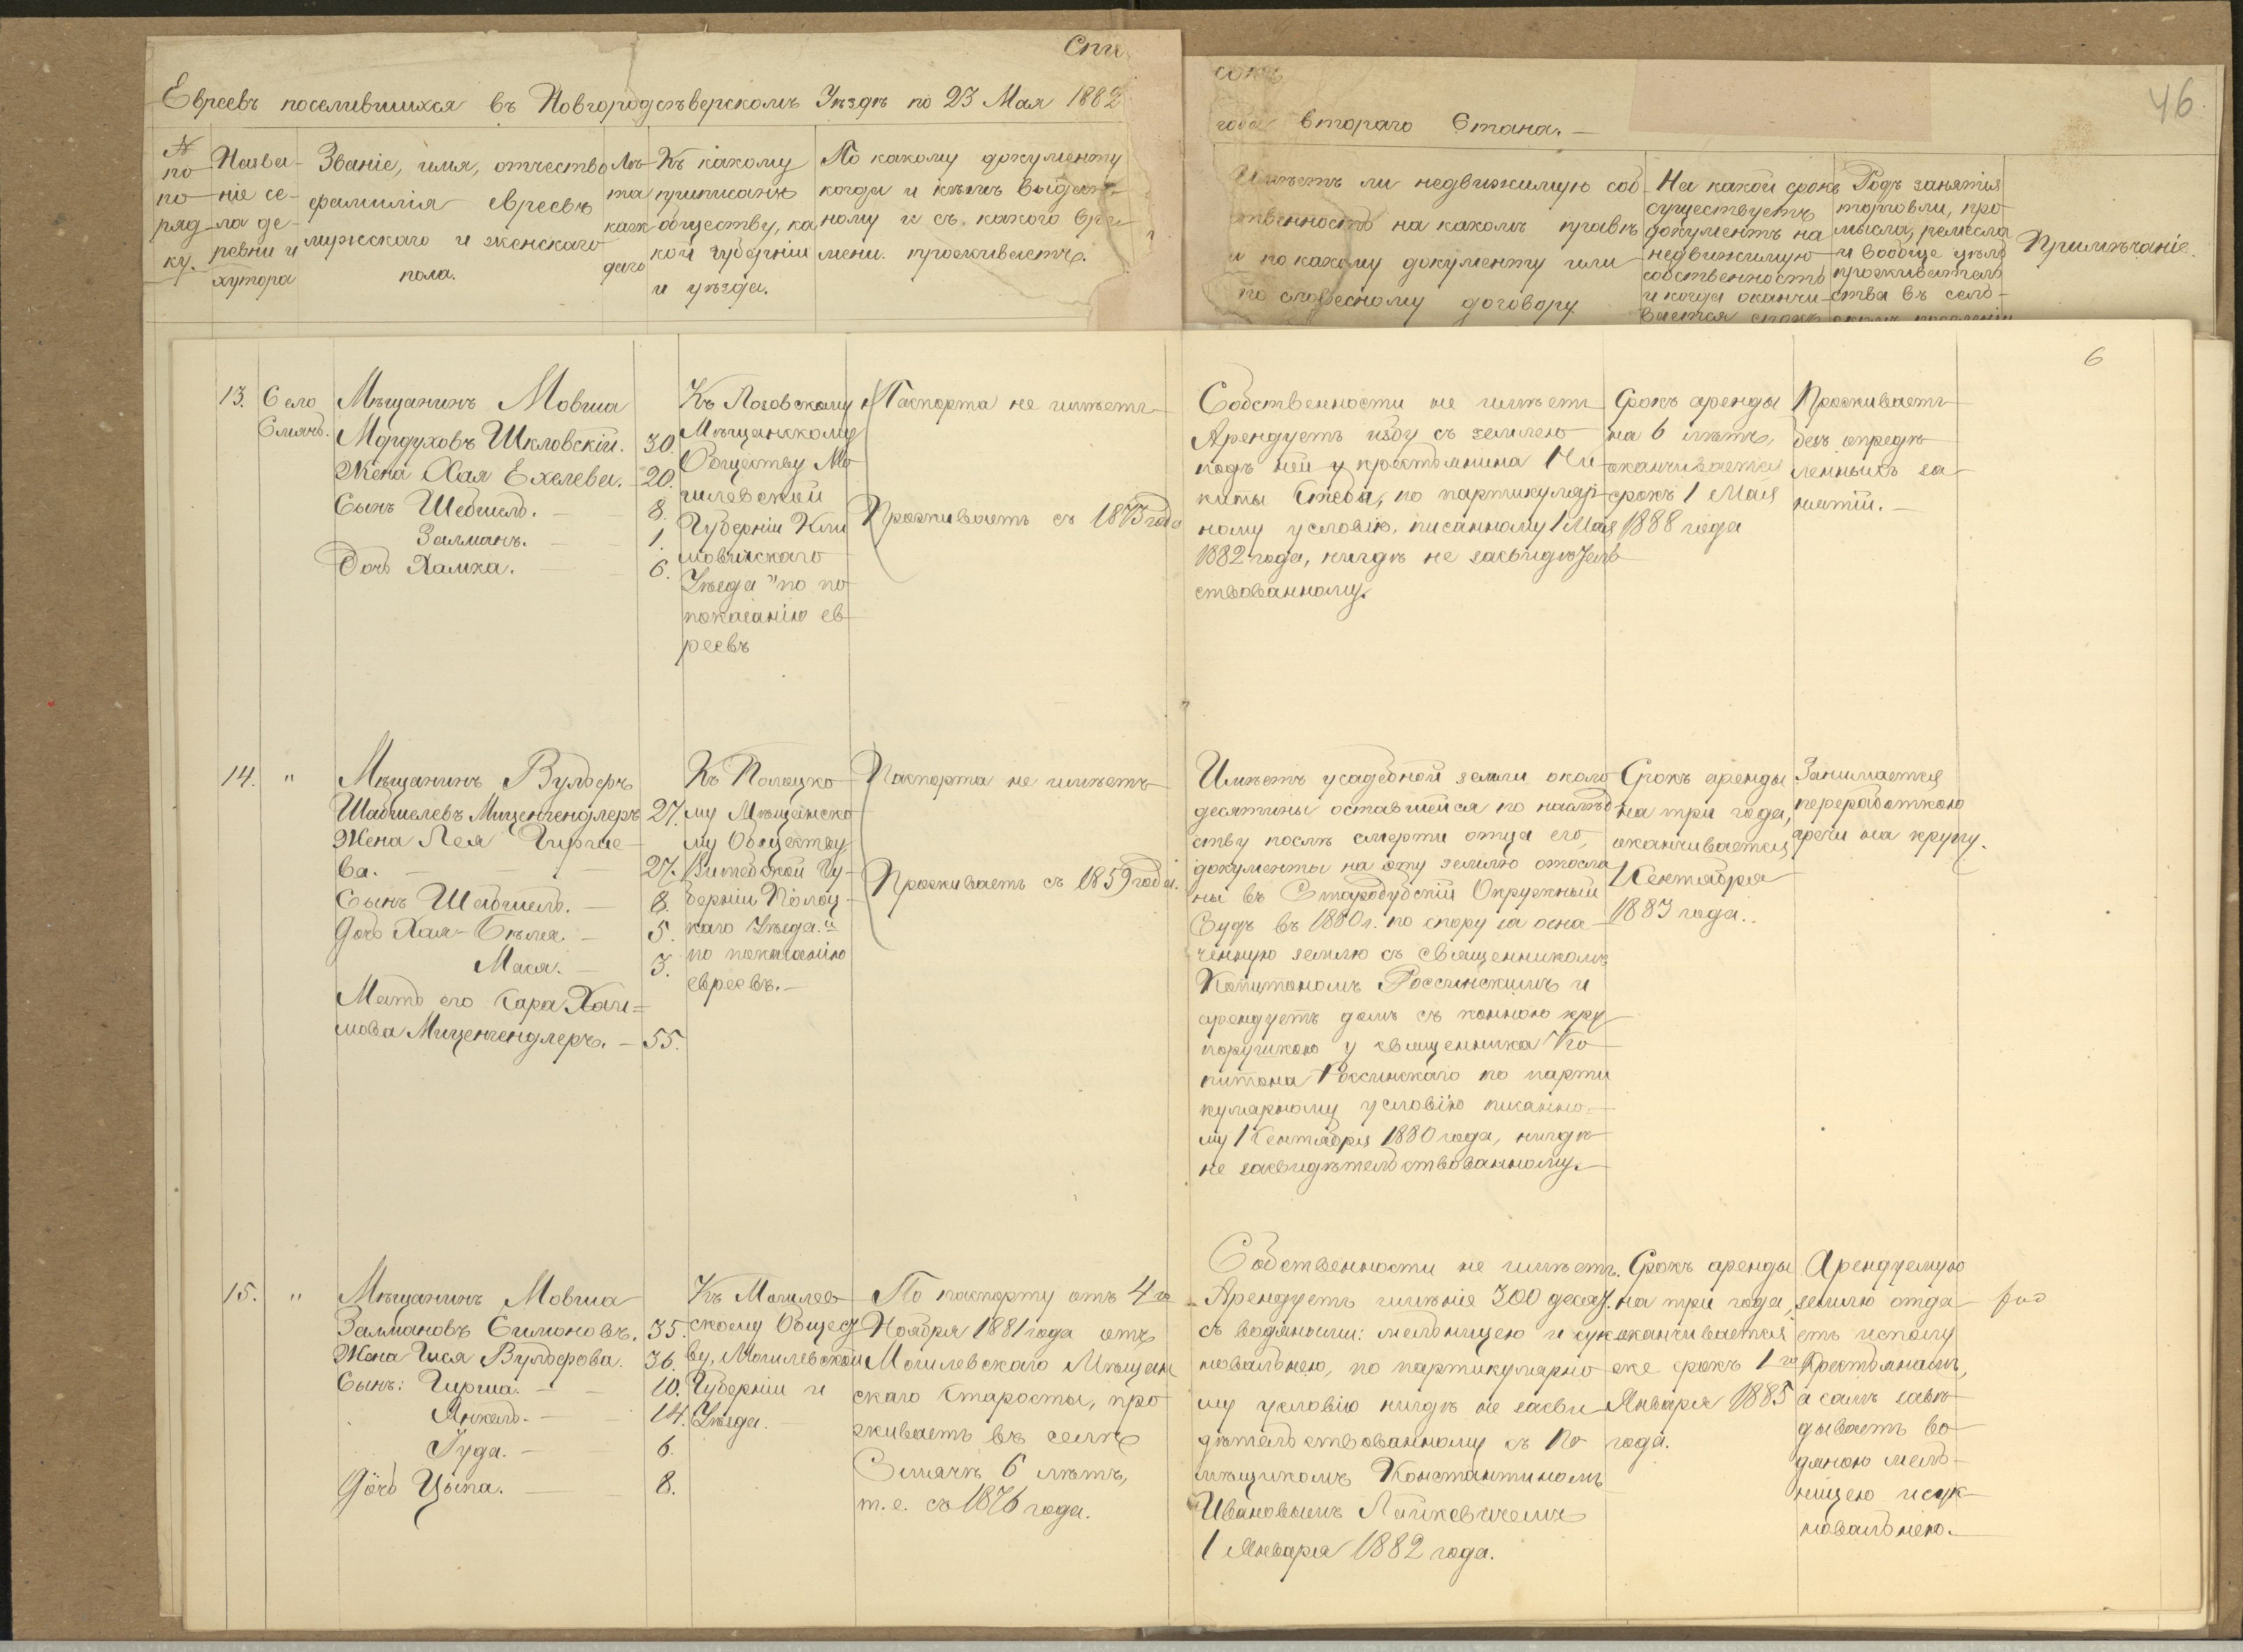 Списокъ
Евреевъ поселившихся въ Новгородсѣверскомъ Уѣздѣ по 23 Мая 1882
года втораго Стана.
46
№ по порядку.
Названіе села деревни и хутора
Званіе, имя, отчество
фамилія евреевъ
мужскаго и женскаго
пола.
Лѣта каждаго
Къ какому
приписанъ
обществу, ка
кой губерніи
и уѣзда.
По какому документу
когда и кѣмъ выдан-
ному и съ какого вре-
мени проживаетъ.
Имѣетъ ли недвижимую соб-
ственность на какомъ правѣ
и по какому документу или
по словесному договору
На какой срокъ
существуетъ
документъ на
недвижимую
собственность
и когда оканчи-
вается срокъ
Родъ занятія
торговли, про
мысла, ремесла
и вообще цѣль
прожиательст
ства въ сель-
скомъ поселеніи
Примѣчаніе.
6
13. Село
Смячь.
Мѣщанинъ Мовша
Мордуховъ Шкловскій. 30.
Жена Хая Ехелева. 20.
Сынъ Шевшель. 8.
Залманъ. 1.
Дочь Хамка. 6.
Къ
Мѣщанскому
Обществу Мо
гилевской
Губерніи Кли
мовичскаго
Уѣзда "по по
показанію ев
реевъ
Паспорта не имѣетъ
Проживаетъ съ 1873 года
Собственности не имѣетъ
Арендуетъ избу съ землею
подъ ней у крестьянина Ни
киты по партикуляр
ному условію, писанному 1 Мая
1882 года, нигдѣ не засвидѣтель
ствованному.
Срокъ аренды
на 6 лѣтъ,
оканчивается
срокъ 1 Мая
1888 года
Проживаетъ
безъ опредѣ
ленныхъ за
нятій.
14. "
Мѣщанинъ Вульферъ
Шабшелевъ Миценгендлеръ 27.
Жена Лея Гирше-
ва. 27.
Сынъ Шебшель. 8.
Дочь Хая-Бѣлея. 5.
Мася. 3.
Мать его Сара Хаи=
мова Миценгендлеръ. 55.
Къ Полоцко
му Мѣщанско
му Обществу
Витебской Гу-
берніи Полоц-
каго Уѣзда "
по показанію
евреевъ.
Паспорта не имѣетъ
Проживаетъ съ 1859 года.
Имѣетъ усадебной земли около
десятины оставшейся по наслѣд
ству послѣ смерти отца его,
документы на эту землю отосла
ны въ Стародубскій Окружный
Судъ въ 1880 г. по спору за озна-
ченную землю съ священникомъ
Капитономъ Россинскимъ и
арендуетъ домъ съ конною кру
порушкою у священника Ка
питона Россинскаго по парти
кулярному условію писанно-
му 1 Сентября 1880 года, нигдѣ
не засвидѣтельствованному.
Срокъ аренды
на три года,
оканчивается
1 Сентября
1883 года.
Занимается
переработкою
гречи на крупу.
15. "
Мѣщанинъ Мовша
Залмановъ Симоновъ. 35.
Жена Гися Вульфова. 36.
Сынъ: Гирша. 10.
Янкель. 14.
Іуда. 6.
Дочь Цыпа. 8.
Къ Могилев
скому Общест
ву, Могилевской
Губерніи и
Уѣзда.
По паспорту отъ 4го
Ноября 1881 года отъ
Могилевскаго Мѣщан
скаго Старосты, про
живаетъ въ селѣ
Смячѣ 6 лѣтъ,
т. е. съ 1876 года.
Собственности не имѣетъ.
Арендуетъ имѣніе 300 десят.
съ водяными: мельницею и сук
новальнею, по партикулярно
му условію нигдѣ не засви
дѣтельствованному съ По
мѣщикомъ Константиномъ
Ивановымъ Лашкевичемъ
1 Января 1882 года.
Срокъ аренды
на три года,
оканчивается
же срокъ 1го
Января 1885
года.
Арендуемую
землю отда
етъ исполу
крестьянамъ,
а самъ завѣ
дываетъ во
дяною мель-
ницею и сук-
новальнею.